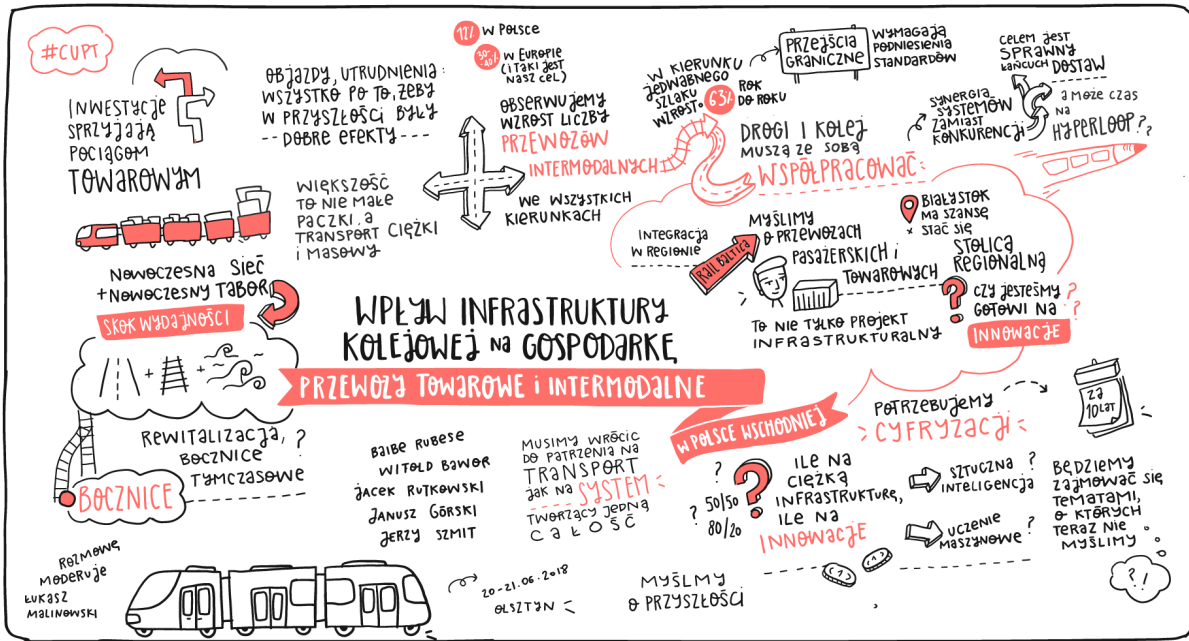 #CUPT
INWESTYCJE
SPRZYJAJĄ
POCIĄGOM
TOWAROWYM
OBJAZDY, UTRUDNIENIA:
WSZYSTKO PO TO, ŻEBY
W PRZYSZŁOŚCI BYŁY
DOBRE EFEKTY
WIĘKSZOŚĆ
TO NIE MAŁE
PACZKI, A
TRANSPORT CIĘŻKI
I MASOWY
12% W POLSCE
30-40% W EUROPIE
(I TAKI JEST
NASZ CEL)
OBSERWUJEMY
WZROST LICZBY
PRZEWOZÓW
INTERMODALNYCH
WE WSZYSTKICH
KIERUNKACH
W KIERUNKU
JEDWABNEGO
SZLAKU
WZROST O 63% ROK
DO ROKU
PRZEJŚCIA
GRANICZNE
WYMAGAJĄ
PODNIESIENIA
STANDARDÓW
DROGI I KOLEJ
MUSZĄ ZE SOBĄ
WSPÓŁPRACOWAĆ
SYNERGIA
SYSTEMÓW
ZAMIAST
KONKURENCJI
CELEM JEST
SPRAWNY
ŁAŃCUCH DOSTAW
A MOŻE CZAS
NA
HYPERLOOP??
INTEGRACJA
W REGIONIE
RAIL BALTICA
MYŚLIMY
O PRZEWOZACH
PASAŻERSKICH I
TOWAROWYCH
TO NIE TYLKO PROJEKT
INFRASTRUKTURALNY
BIAŁYSTOK
MA SZANSĘ
STAĆ SIĘ
STOLICĄ
REGIONALNĄ
? CZY JESTEŚMY ?
GOTOWI NA ?
INNOWACJE
NOWOCZESNA SIEĆ
+ NOWOCZESNY TABOR
SKOK WYDAJNOŚCI
+ +
REWITALIZACJA, ?
BOCZNICE
TYMCZASOWE
BOCZNICE
WPŁYW INFRASTRUKTURY
KOLEJOWEJ NA GOSPODARKĘ
PRZEWOZY TOWAROWE I INTERMODALNE
W POLSCE WSCHODNIEJ
BAIBE RUBESE
WITOLD BAWOR
JACEK RUTKOWSKI
JANUSZ GÓRSKI
JERZY SZMIT
MUSIMY WRÓCIC
DO PATRZENIA NA
TRANSPORT
JAK NA SYSTEM
TWORZĄCY JEDNĄ
CAŁOŚĆ
?
? 50/50
80/20
?
ILE NA
CIĘŻKĄ
INFRASTRUKTURĘ,
ILE NA
INNOWACJE
POTRZEBUJEMY
CYFRYZACJI
ZA
10 LAT
SZTUCZNA ?
INTELIGENCJA
UCZENIE ?
MASZYNOWE
BĘDZIEMY
ZAJMOWAĆ SIĘ
TEMATAMI,
O KTÓRYCH
TERAZ NIE
MYŚLIMY
?!
ROZMOWĘ
MODERUJE
ŁUKASZ
MALINOWSKI
20-21.06.2018
OLSZTYN
MYŚLMY
O PRZYSZŁOŚCI
1 1